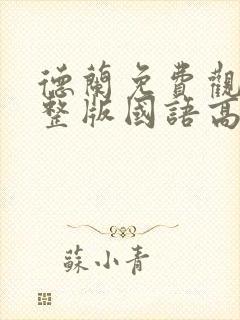 德蘭免費觀
整版國語高
蘇小青